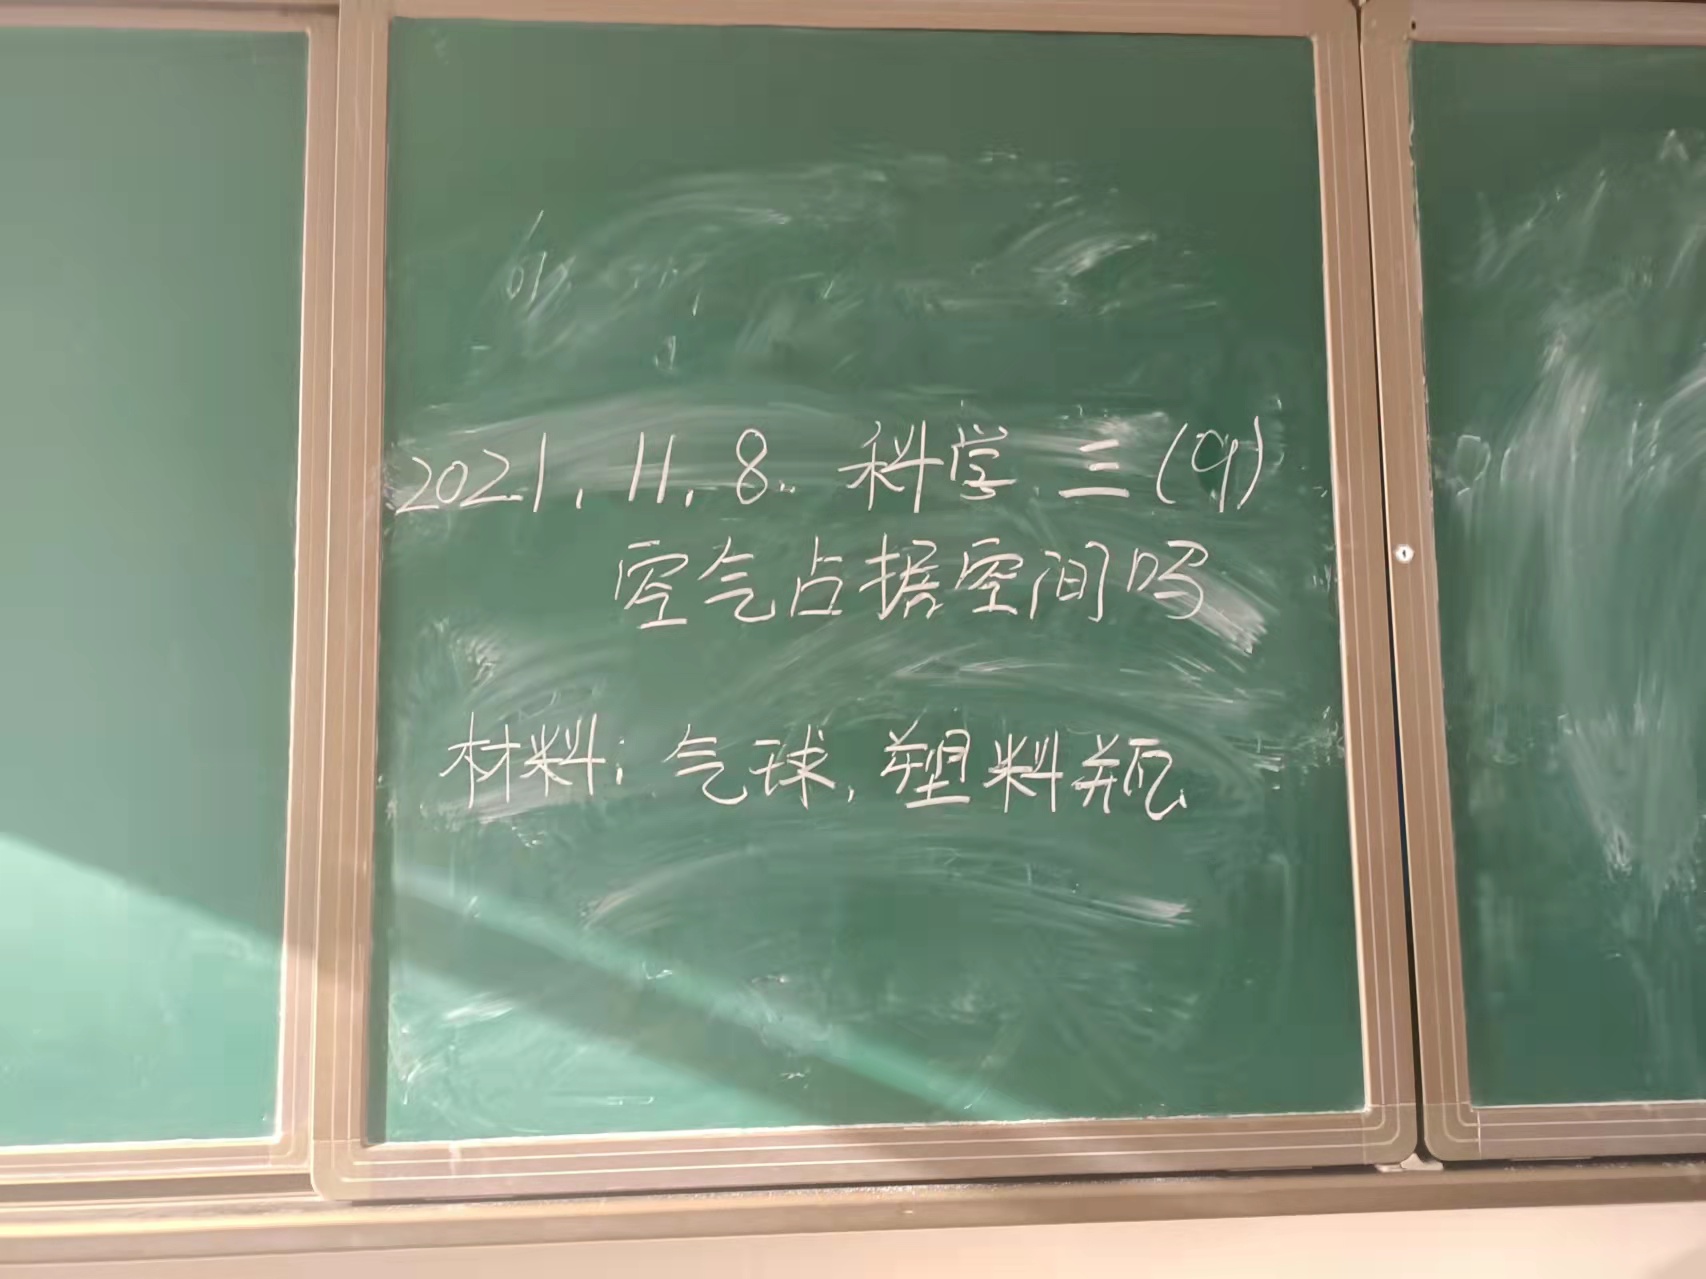 2021.11.8. 科学 三(9)
空气占据空间吗
材料：气球，塑料瓶